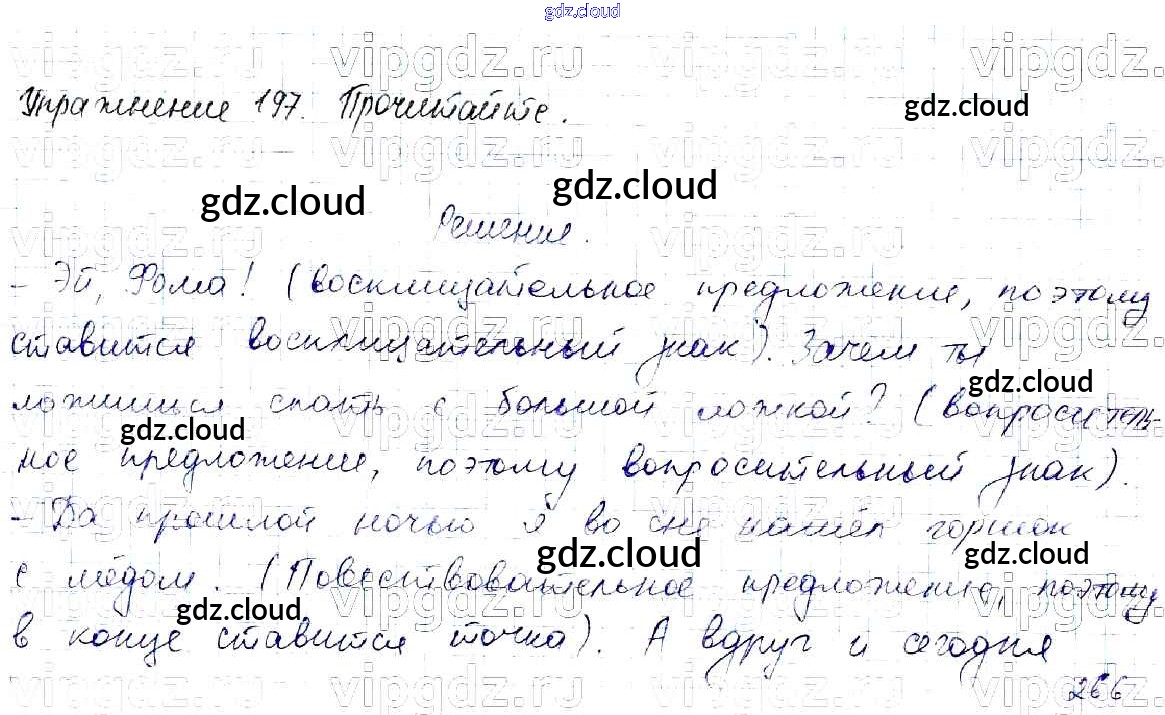 gdz.cloud
Упражнение 197. Прочитайте.
gdz.cloud
gdz.cloud gdz.cloud
Решение.
- Эй, Фома! (восклицательное предложение, поэтому
ставится восклицательный знак). Зачем ты
gdz.cloud
ложишься спать с большой ложкой? (вопроситель-
gdz.cloud
ное предложение, поэтому вопросительный знак).
- Да прошлой ночью я во сне нашёл горшок
gdz.cloud gdz.cloud
с мёдом. (Повествовательное предложение, поэтому
gdz.cloud
в конце ставится точка). А вдруг и сегодня
266
vipgdz.ru